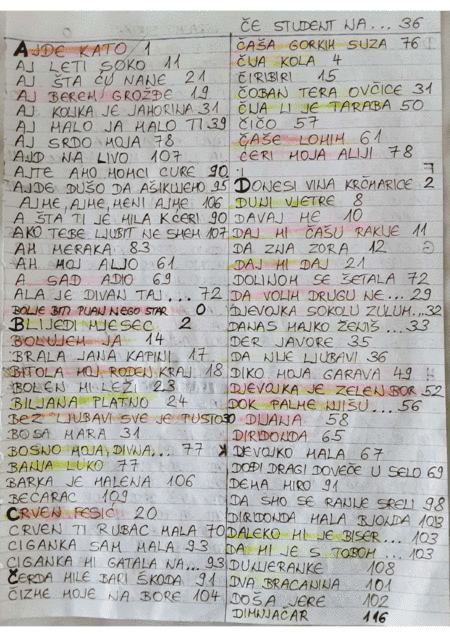 AJDE KATO 1
AJ LETI SOKO 11
AJ ŠTA ĆU NANE 21
AJ BEREM GROŽĐE 19
AJ KOLIKA JE JAHORINA 31
AJ MALO JA MALO TI 39
AJ SRDO MOJA 78
AJD NA LIVO 107
AJTE AMO MOMCI CURE 90
AJDE DUŠO DA AŠIKUJEMO 95
AJME, AJME, MENI AJME 106
A ŠTA TI JE MILA KĆERI 90
AKO TEBE LJUBIT NE SMEM 107
AH MERAKA 83
AH MOJ ALJO 61
A SAD ADIO 69
ALA JE DIVAN TAJ... 72
BOLJE BITI PIJAN NEGO STAR 0
BLIJEDI MJESEC 2
BOLUJEM JA 14
BRALA JANA KAPINI 17
BITOLA MOJ RODEN KRAJ 18
BOLEN MI LEŽI 23
BILJANA PLATNO 24
BEZ LJUBAVI SVE JE PUSTO 30
BOSA MARA 31
BOSNO MOJA, DIVNA,... 77
BANJA LUKO 77
BARKA JE MALENA 106
BEĆARAC 109
CRVEN FESIĆ 20
CRVEN TI RUBAC MALA 70
CIGANKA SAM MALA 93
CIGANKA MI GATALA NA... 93
ČERDA MILE BARI ŠKODA 91
ČIZME MOJE NA BORE 104
ČE STUDENT NA... 36
ČAŠA GORKIH SUZA 76
ČIJA KOLA 4
ĆIRIBIRI 15
ČOBAN TERA OVČICE 31
ČIJA LI JE TARABA 50
ČIČO 57
ČAŠE LOMIM 61
ĆERI MOJA ALIJI 78
DONESI VINA KRČMARICE 2
DUNI VJETRE 8
DAVAJ ME 10
DAJ MI ČAŠU RAKIJE 11
DA ZNA ZORA 12
DAJ MI DAJ 21
DOLINOM SE ŠETALA 72
DA VOLIM DRUGU NE... 29
DJEVOJKA SOKOLU ZULUM...32
DANAS MAJKO ŽENIŠ...33
ĐER JAVORE 35
DA NIJE LJUBAVI 36
DIKO MOJA GARAVA 49
DJEVOJKA JE ZELEN BOR 52
DOK PALME NJIŠU... 56
DIJANA 58
DIRIDONDA 65
DEVOJKO MALA 67
DOĐI DRAGI DOVEČE U SELO 69
DEMA MIRO 91
DA SMO SE RANIJE SRELI 98
DIRIDONDA MALA BJONDA 103
DALEKO MI JE BISER... 103
DA MI JE S TOBOM... 103
DUNJERANKE 108
DVA BRACANINA 101
DOŠA JERE 102
DIMNJAČAR 116